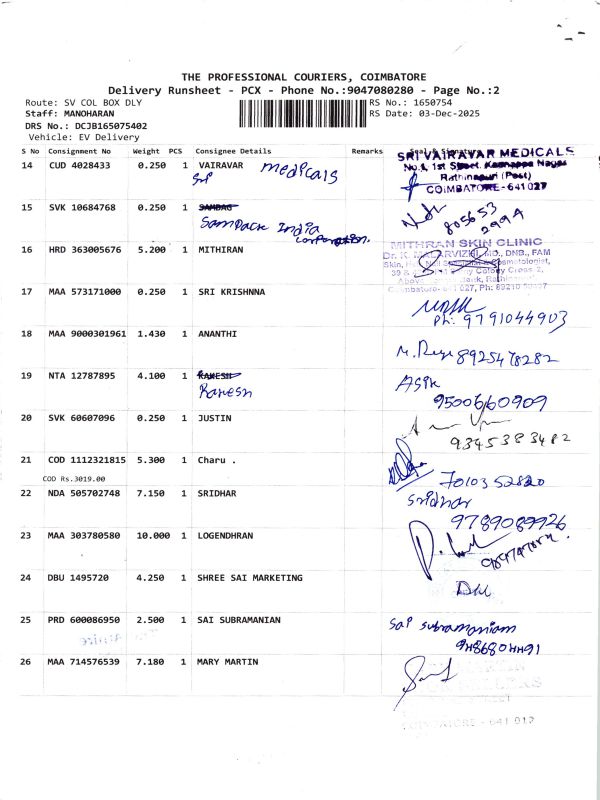 THE PROFESSIONAL COURIERS, COIMBATORE
Delivery Runsheet - PCX - Phone No.:9047080280 - Page No.:2
Route: SV COL BOX DLY RS No.: 1650754
Staff: MANOHARAN RS Date: 03-Dec-2025
DRS No.: DCJB165075402
Vehicle: EV Delivery
S No Consignment No Weight PCS Consignee Details Remarks Seal & Signature
14 CUD 4028433 0.250 1 VAIRAVAR medicals
Sri
SRI VAIRAVAR MEDICALS
No.1, 1st Street, Kannappa Nagar
Rathinapuri (Post)
COIMBATORE - 641 027
15 SVK 10684768 0.250 1
Sampack India
corporation.
805653
2994
16 HRD 363005676 5.200 1 MITHIRAN
MITHRAN SKIN CLINIC
Dr. K. MALARVIZHI, MD., DNB., FAM
17 MAA 573171000 0.250 1 SRI KRISHNNA
Ph: 9791044903
18 MAA 9000301961 1.430 1 ANANTHI
8925478282
19 NTA 12787895 4.100 1 RAKESH
Ramesh
Asik
9500660909
20 SVK 60607096 0.250 1 JUSTIN
9345383482
21 COD 1112321815 5.300 1 Charu .
COD Rs.3019.00
7010352820
22 NDA 505702748 7.150 1 SRIDHAR
sridhar
9789089926
23 MAA 303780580 10.000 1 LOGENDHRAN
24 DBU 1495720 4.250 1 SHREE SAI MARKETING
25 PRD 600086950 2.500 1 SAI SUBRAMANIAN
Sai subramaniam
9486804491
26 MAA 714576539 7.180 1 MARY MARTIN
COIMBATORE - 641 012